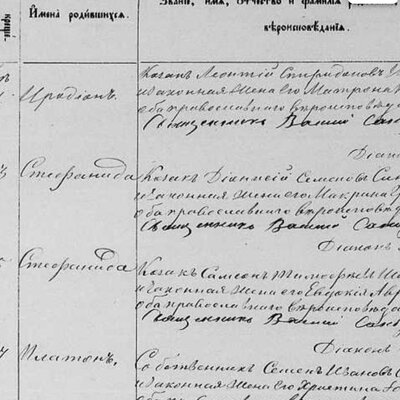 Имена родившихся.
Званіе, имя, отчество и фамилія
вѣроисповѣданія.
Иродіонъ.
Козакъ Леонтій Спиридоновъ
и законная жена его Матрона
оба православнаго вѣроисповѣд
Священникъ Василій Сав
Діак
Стефанида
Козакъ Діонисій Семеновъ
и законная жена его Макрина
оба православнаго вѣроисповѣд
Священникъ Василій Сав
Діаконъ
Стефанида
Козакъ Самсонъ Тимофѣевъ
и законная жена его Евдокія
оба православнаго вѣроисповѣда
Священникъ Василій Сав
Діаконъ
Платонъ,
Собственникъ Семенъ Ивановъ
и законная жена его Христина